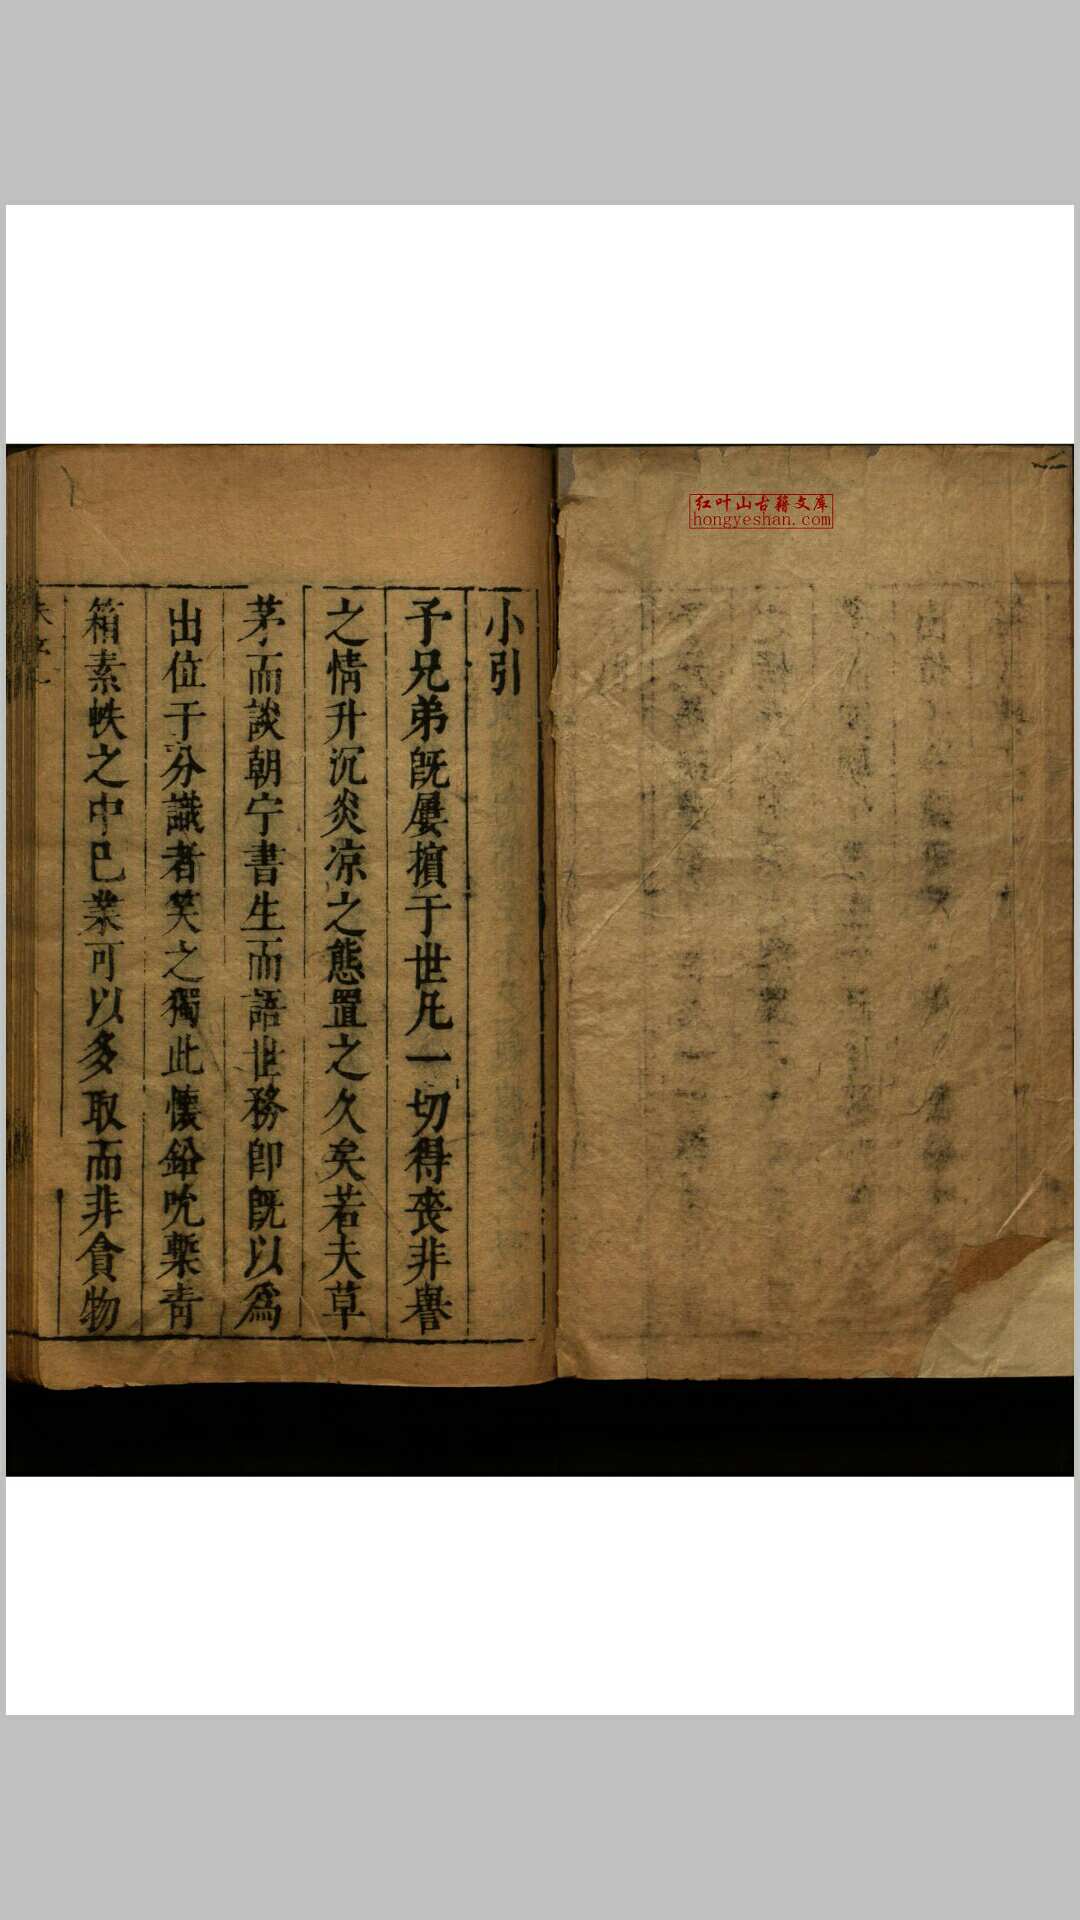 红叶山古籍文库
hongyeshan.com
小引
予兄弟既屢擯于世凡一切得喪非譽
之情升沉炎凉之態置之久矣若夫草
茅而談朝宁書生而語世務即既以爲
出位于分識者笑之獨此懷鉛吮槧青
箱素帙之中已業可以多取而非貪物